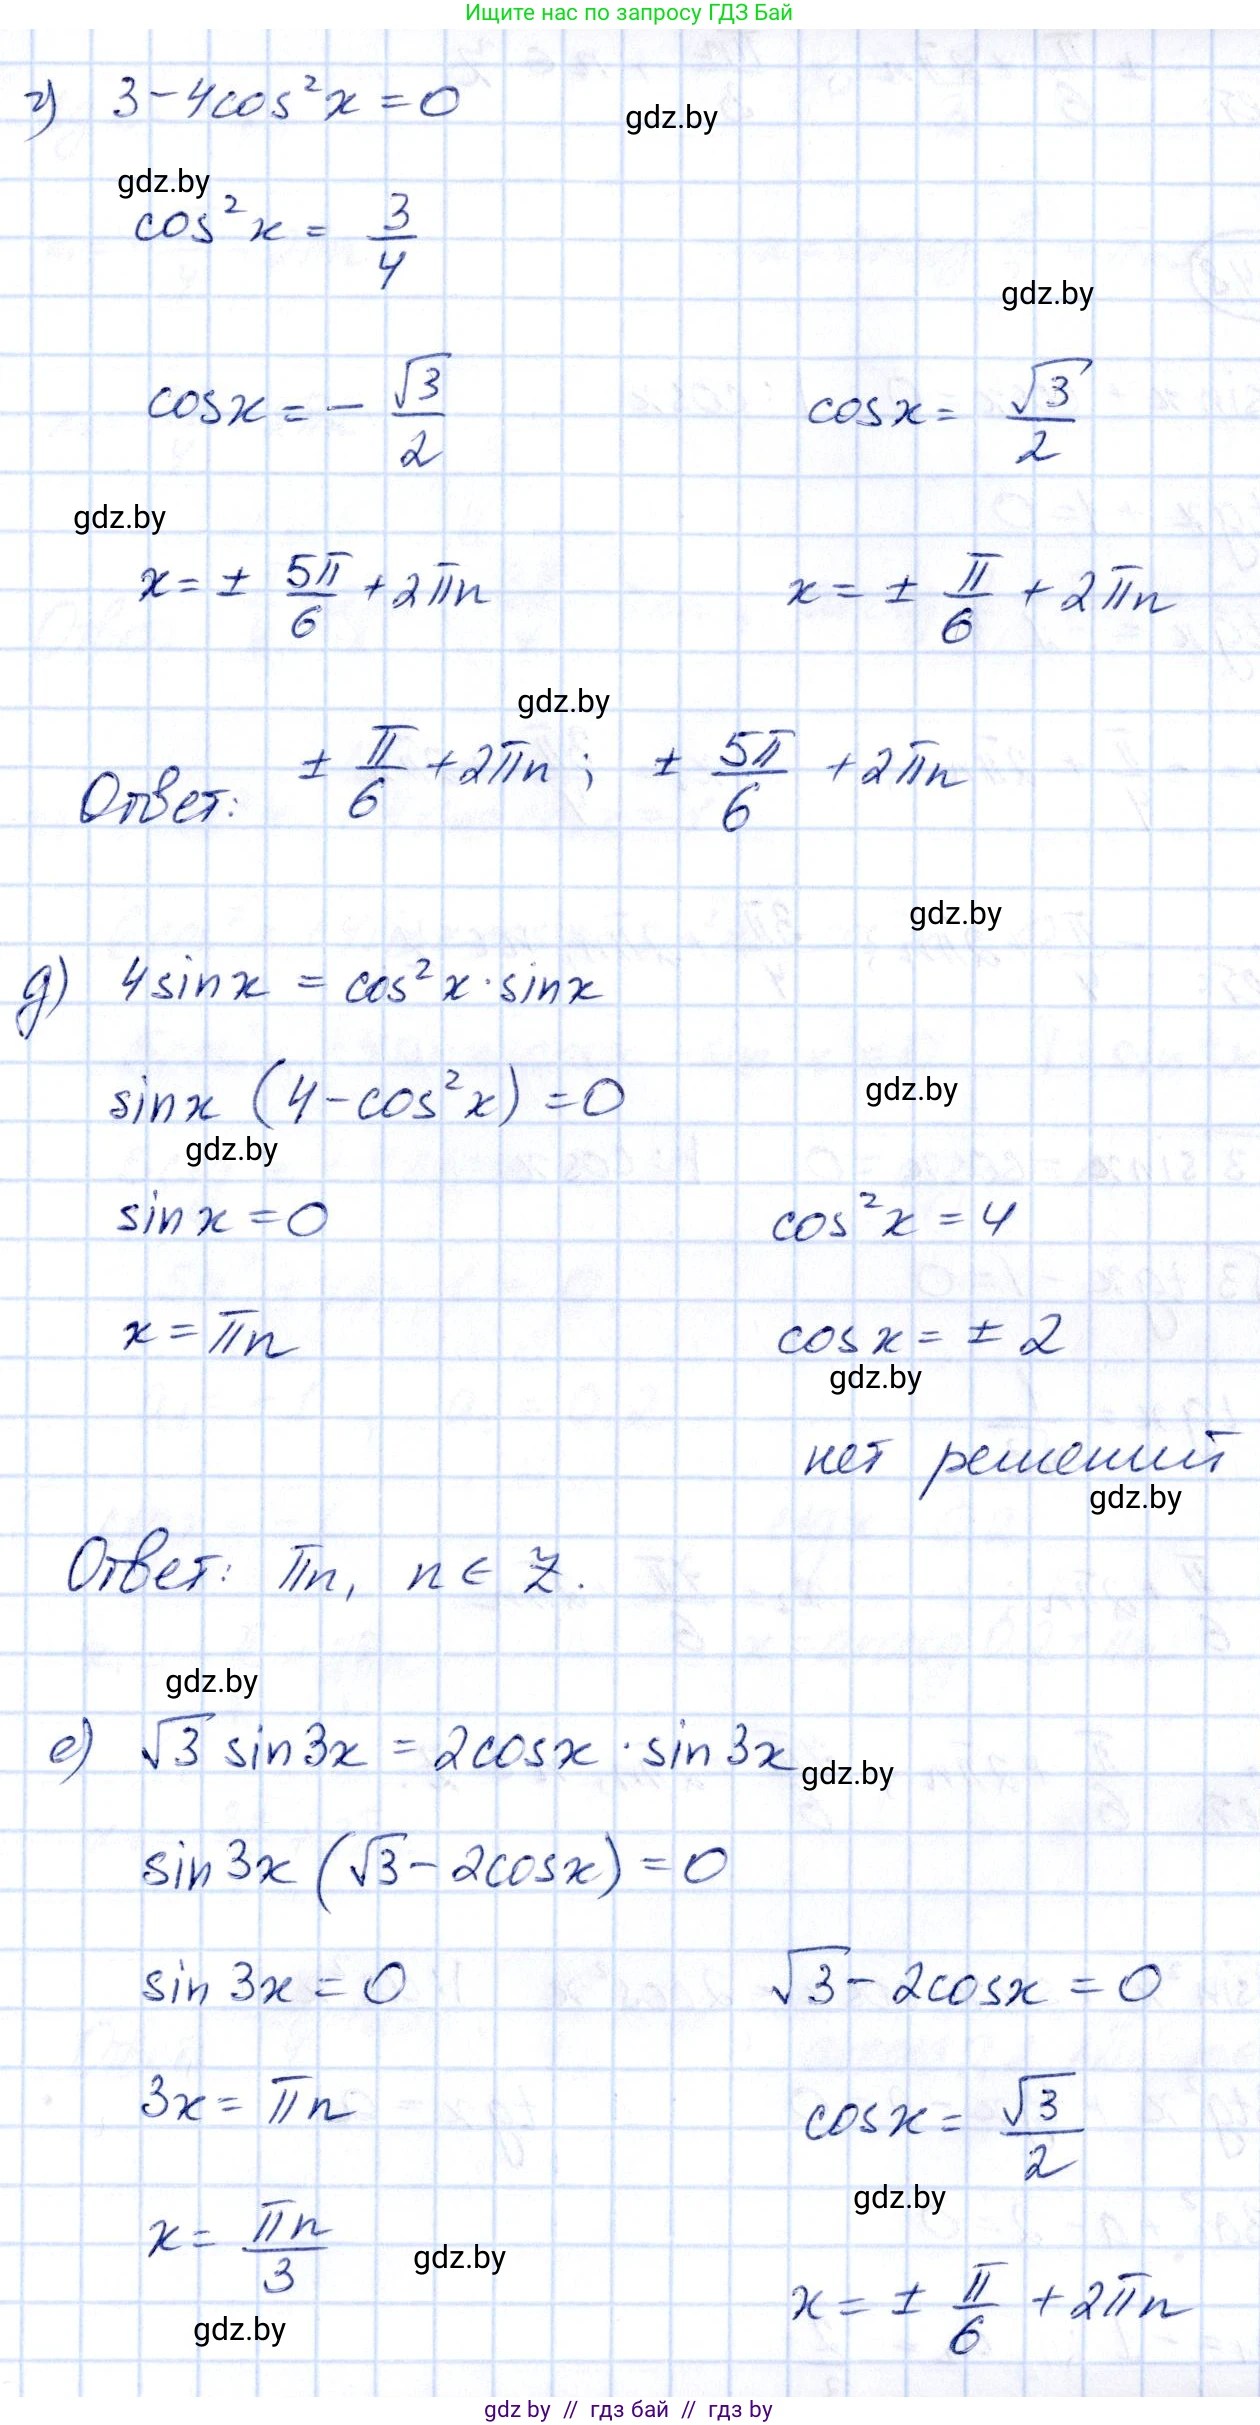 Ищите нас по запросу ГДЗ Бай
г) 3-4cos²x=0
gdz.by
gdz.by
cos²x = 3/4
gdz.by
cosx = - √3/2    cosx = √3/2
gdz.by
x = ± 5π/6 + 2πn    x = ± π/6 + 2πn
gdz.by
Ответ: ± π/6 + 2πn ; ± 5π/6 + 2πn
gdz.by
д) 4sinx = cos²x·sinx
sinx (4-cos²x) = 0
gdz.by
gdz.by
sinx = 0    cos²x = 4
x = πn    cosx = ± 2
gdz.by
нет решений
gdz.by
Ответ: πn, n ∈ Z.
gdz.by
е) √3 sin3x = 2cosx · sin3x
gdz.by
sin3x (√3 - 2cosx) = 0
sin3x = 0    √3 - 2cosx = 0
3x = πn    cosx = √3/2
gdz.by
x = πn/3
gdz.by
gdz.by
x = ± π/6 + 2πn
gdz.by // гдз бай // гдз by